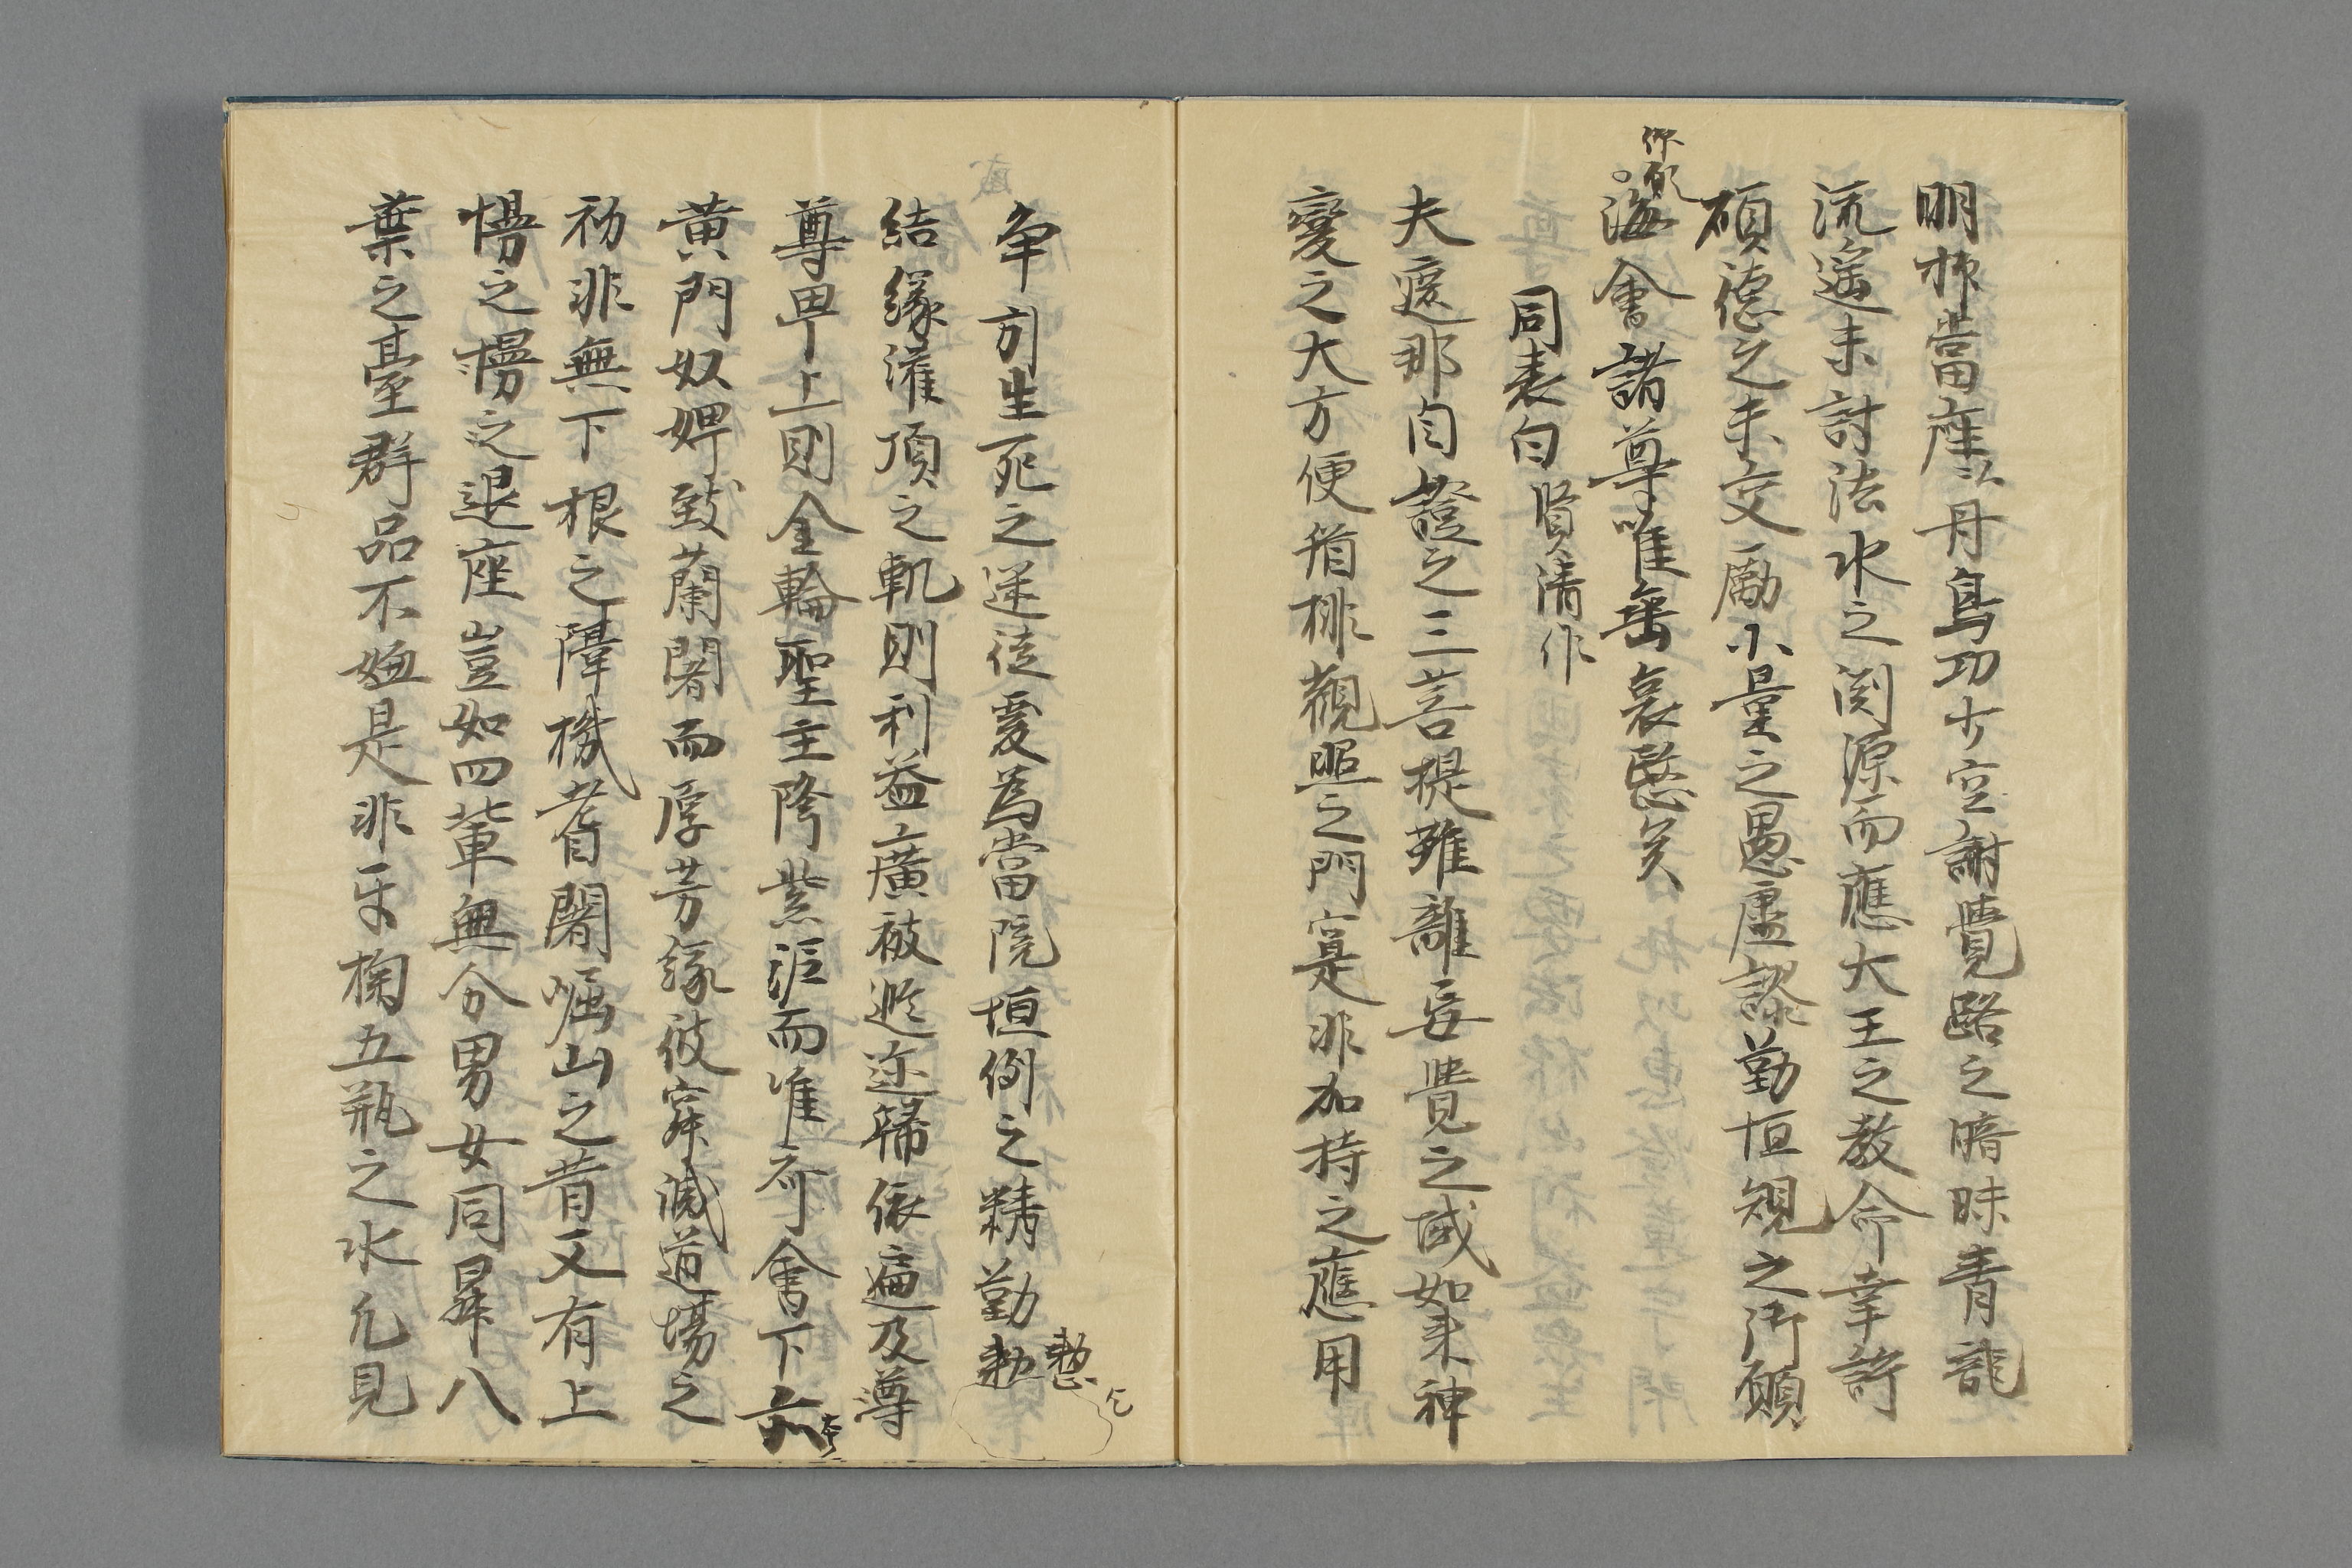 明抑當座以丹鳥功少空謝覺路之暗昧青龍
流遥未討法水之淵源而應大王之教命幸許
碩德之未交勵小量之愚虚謬勤恒規之行願
仰願
海會諸尊唯垂哀愍矣
同表白 賢清作
夫遮那自證之三菩提雖離妄覺之域如来神
變之大方便猶排觀照之門寔是非加持之應用
争引生死之迷徒爰為當院恒例之精勤勲
慇
结縁灌頂之軌則利益廣被遐迩歸依遍及尊
尊卑上則金輪聖主降紫泥而准齋會下亦
黄門奴婢致蘭闍而厚芳縁彼寂滅道場之
初非無下根之障機耆闍崛山之昔又有上
慢之慢之退座豈如四輩無分男女同昇八
葉之臺群品不嫌是非手掬五瓶之水凢見